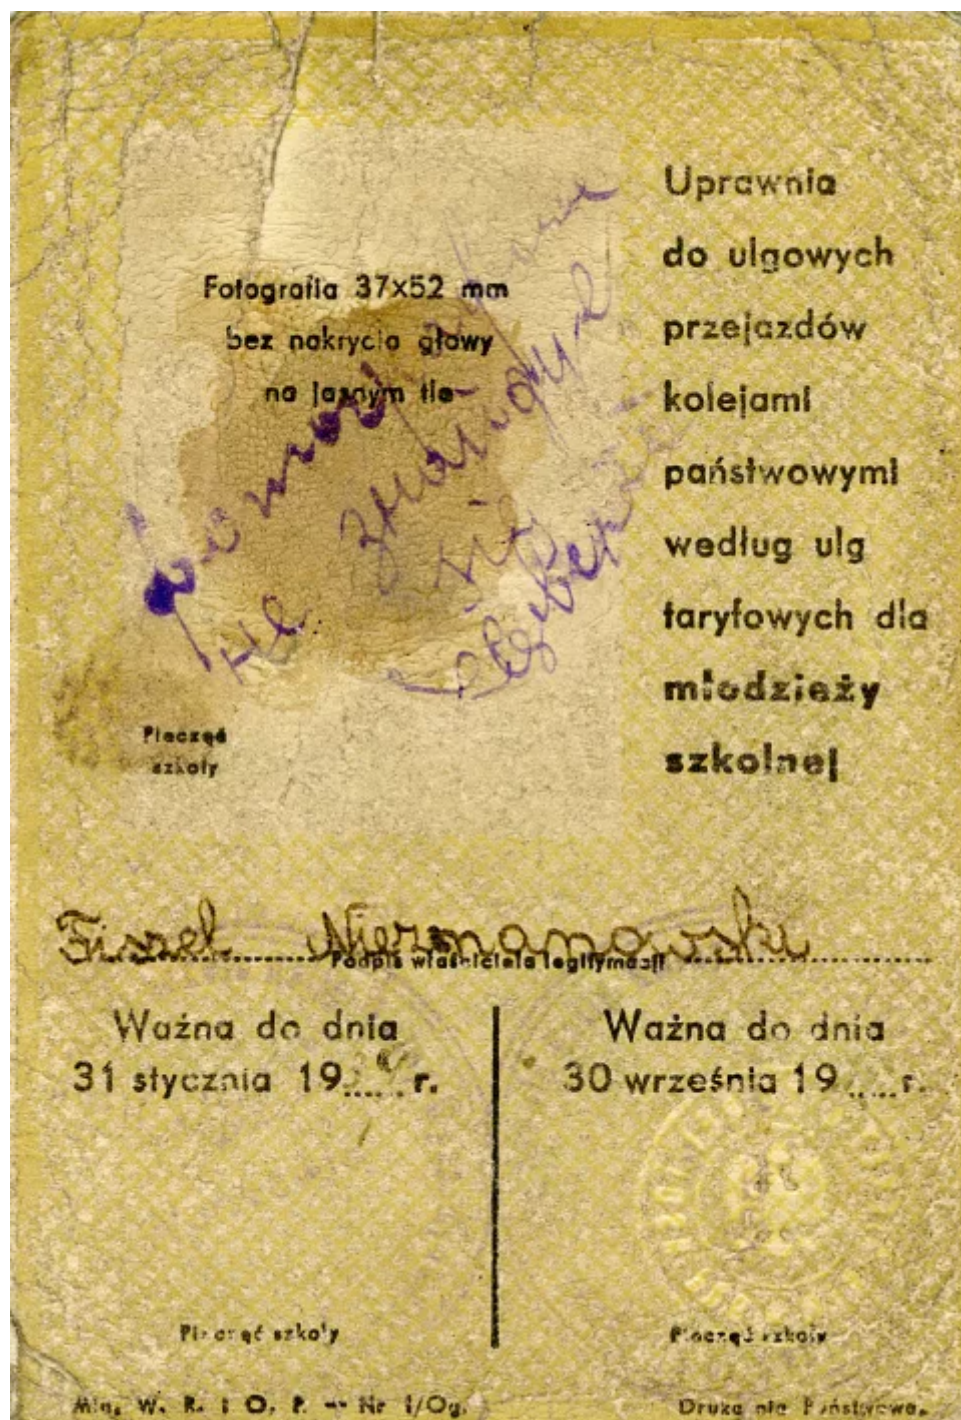 Fotografia 37×52 mm
bez nakrycia głowy
na jasnym tle
Pieczęć
szkoły
Uprawnia
do ulgowych
przejazdów
kolejami
państwowymi
według ulg
taryfowych dla
młodzieży
szkolnej
nie znajduje
się
Fiszel Niezmanowski
Podpis właściciela legitymacji
Ważna do dnia
31 stycznia 19 r.
Pieczęć szkoły
Ważna do dnia
30 września 19 r.
Pieczęć szkoły
Min. W. R. i O. P. — Nr 1/Og.
Drukarnia Państwowa.